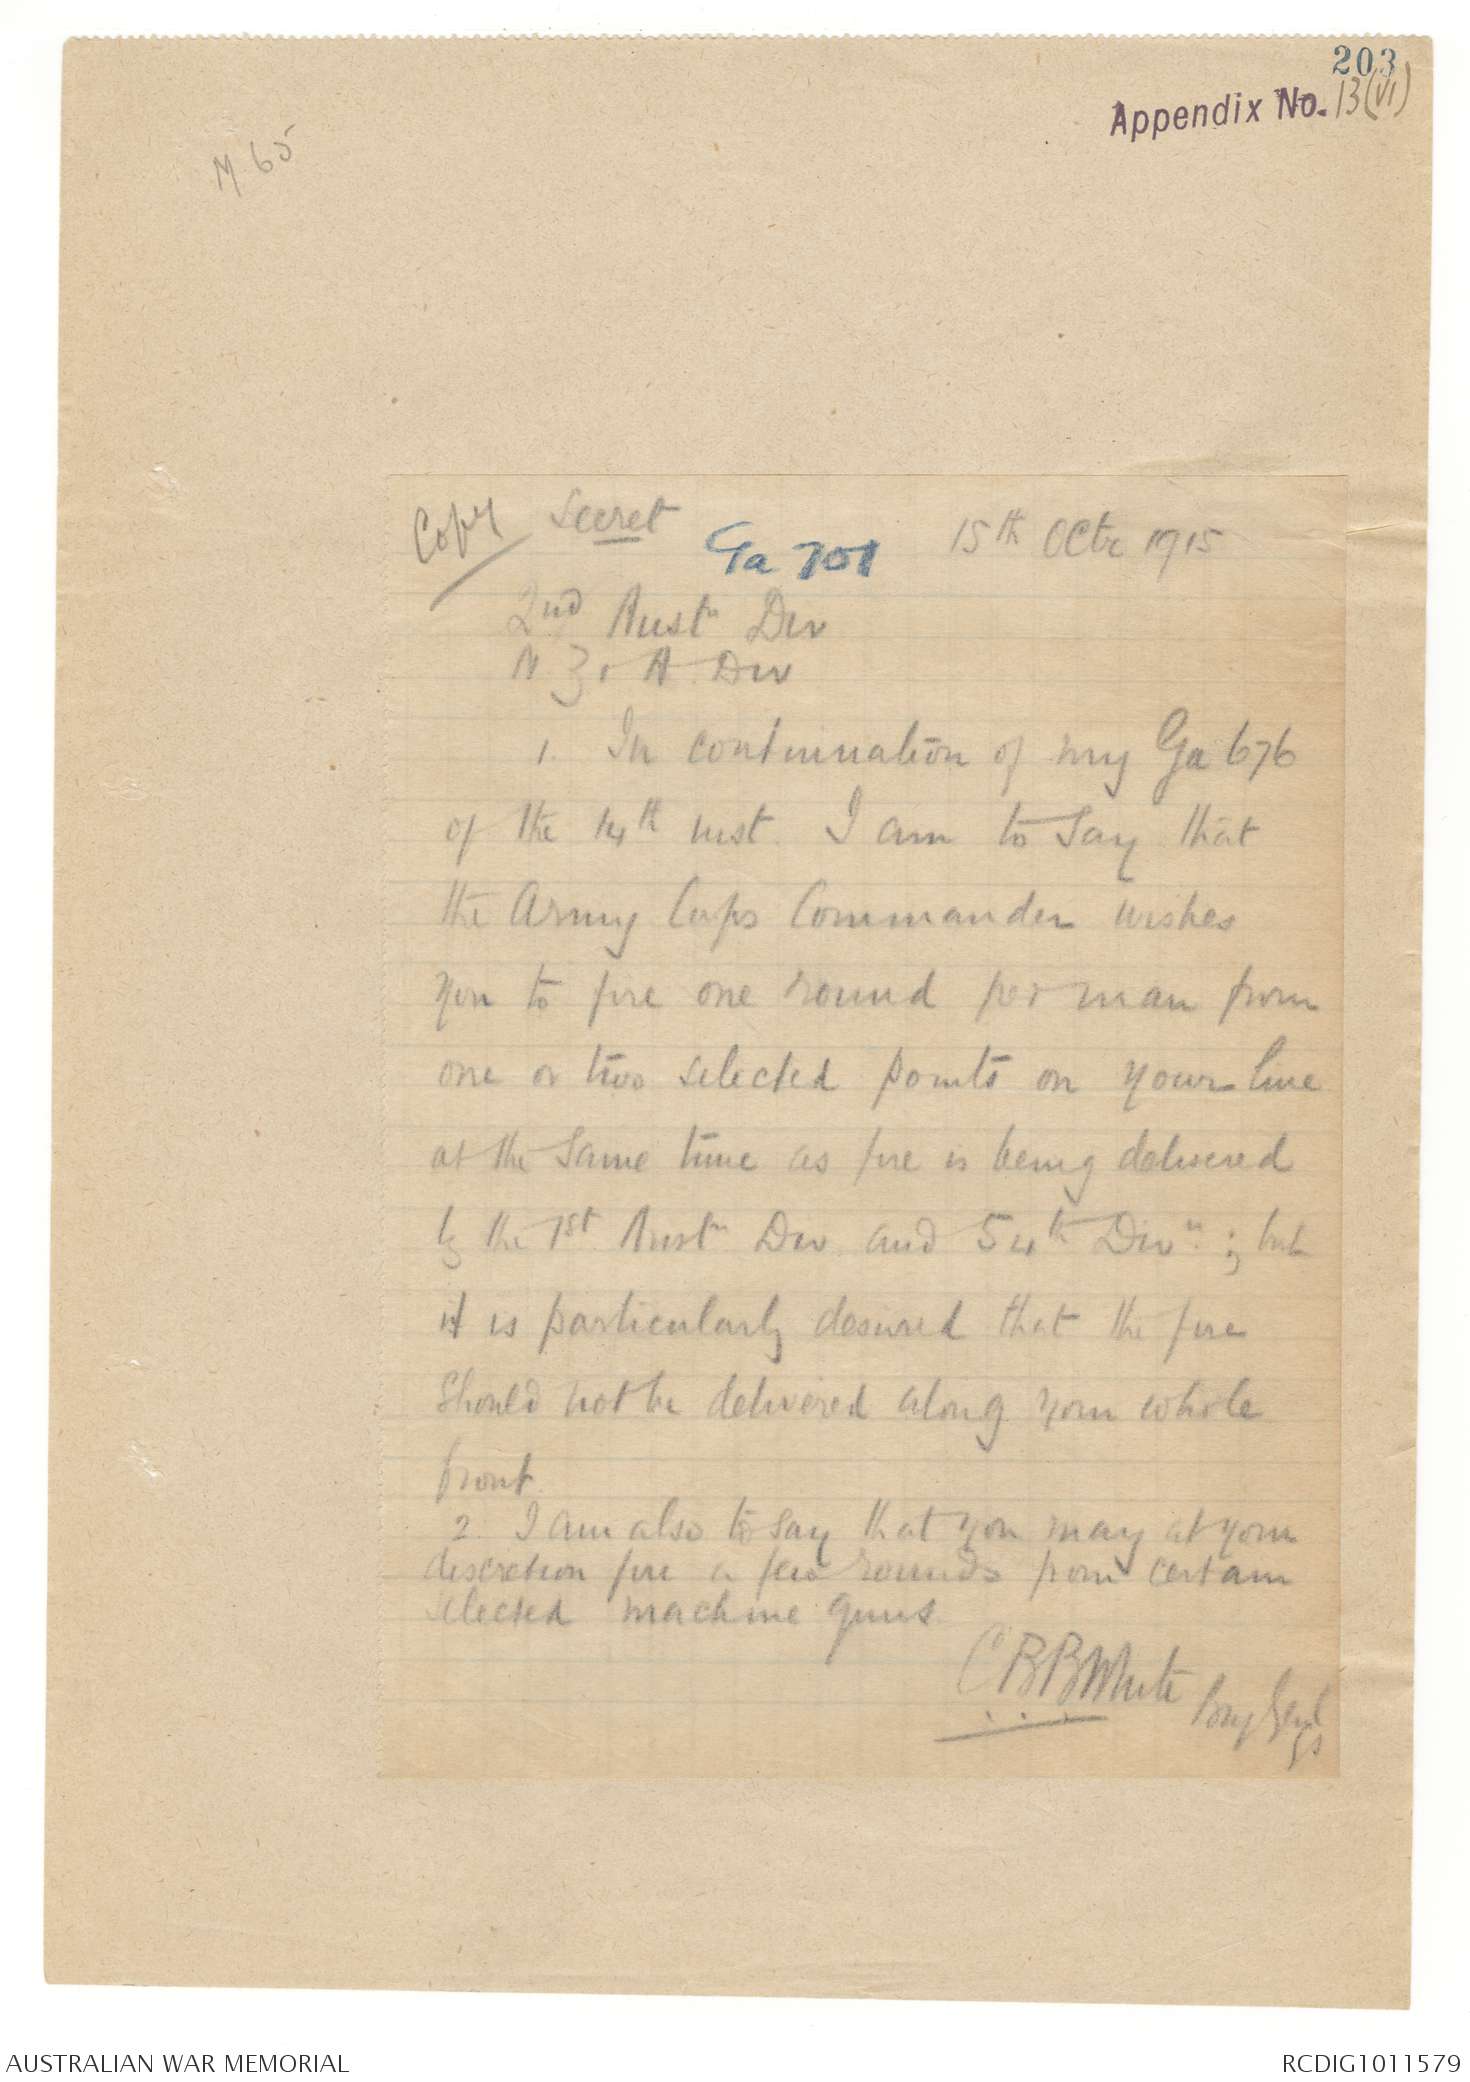 203
Appendix No. 13(VI)
M 65
Copy
Secret
Ga 701
15th Octr 1915
2nd Austn Div
N.Z. & A Div
1. In continuation of my Ga 676
of the 14th inst. I am to say that
the Army Corps Commander wishes
you to fire one round per man from
one or two selected points on your line
at the same time as fire is being delivered
by the 1st Austn Div. and 54th Divn.; but
it is particularly desired that the fire
should not be delivered along your whole
front.
2. I am also to say that you may at your
discretion fire a few rounds from certain
selected machine guns.
C B B White
Brig Genl
GS
AUSTRALIAN WAR MEMORIAL
RCDIG1011579